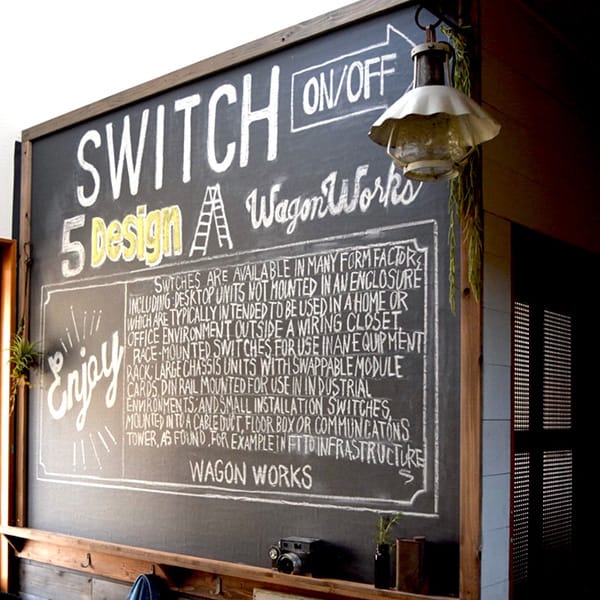 SWITCH
ON/OFF
5 Design
Wagon Works
Enjoy
SWITCHES ARE AVAILABLE IN MANY FORM FACTORS,
INCLUDING: DESKTOP UNITS NOT MOUNTED IN AN ENCLOSURE
WHICH ARE TYPICALLY INTENDED TO BE USED IN A HOME OR
OFFICE ENVIRONMENT OUTSIDE A WIRING CLOSET,
RACE-MOUNTED SWITCHES FOR USE IN AN EQUIPMENT
RACK; LARGE CHASSIS UNITS WITH SWAPPABLE MODULE
CARDS DIN RAIL MOUNTED FOR USE IN INDUSTRIAL
ENVIRONMENTS; AND SMALL INSTALLATION SWITCHES,
MOUNTED INTO A CABLE DUCT, FLOOR BOX OR COMMUNICATONS
TOWER, AS FOUND, FOR EXAMPLE IN FT TO INFRASTRUCTURE
S
WAGON WORKS